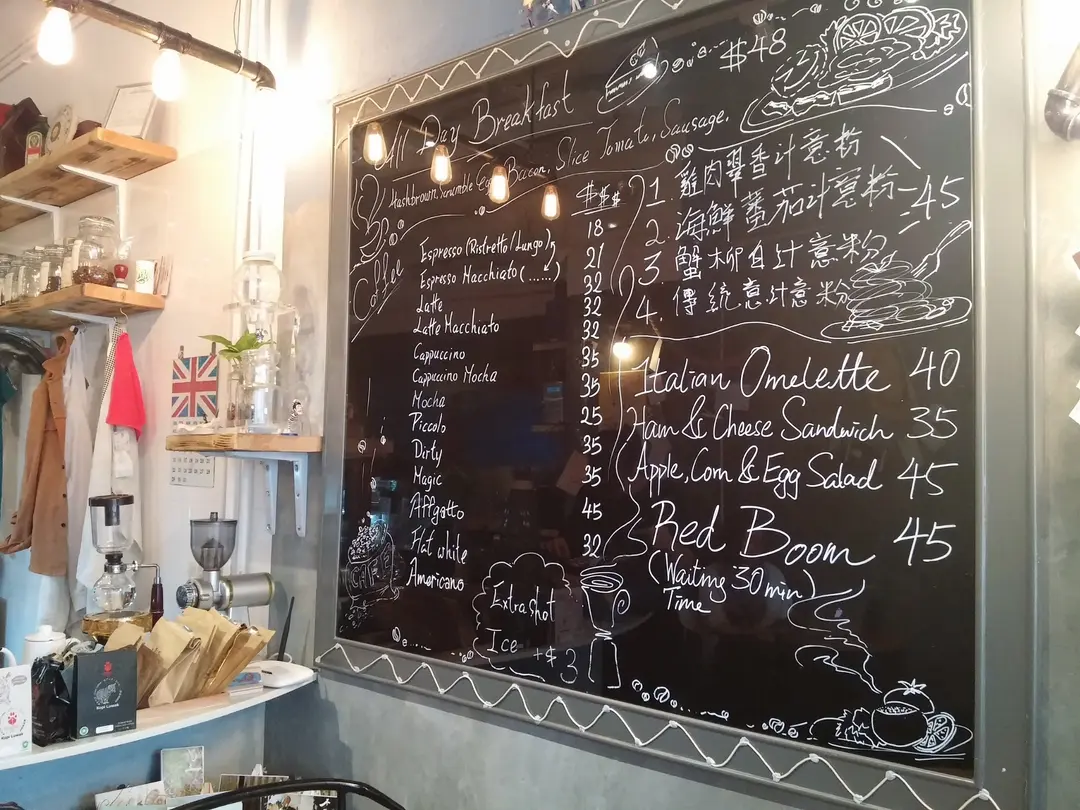 All Day Breakfast $48
Hashbrown, Scrumble Egg, Bacon, Slice Tomato, Sausage.
Coffee
$$$
Espresso (Ristretto/Lungo)
Espresso Macchiato (......)
Latte
Latte Macchiato
Cappuccino
Cappuccino Mocha
Mocha
Piccolo
Dirty
Magic
Affgatto
Flat white
Americano
18
21
32
32
32
35
35
25
35
35
45
32
Extra shot
Ice +$3
CAFE
1. 雞肉香汁意粉
2. 海鮮蕃茄汁意粉 -45
3. 蟹柳白汁意粉
4. 傳統意汁意粉
Italian Omelette 40
Ham & Cheese Sandwich 35
Apple, Corn & Egg Salad 45
Red Boom 45
(Waiting 30min)
Time
Kopi Luwak